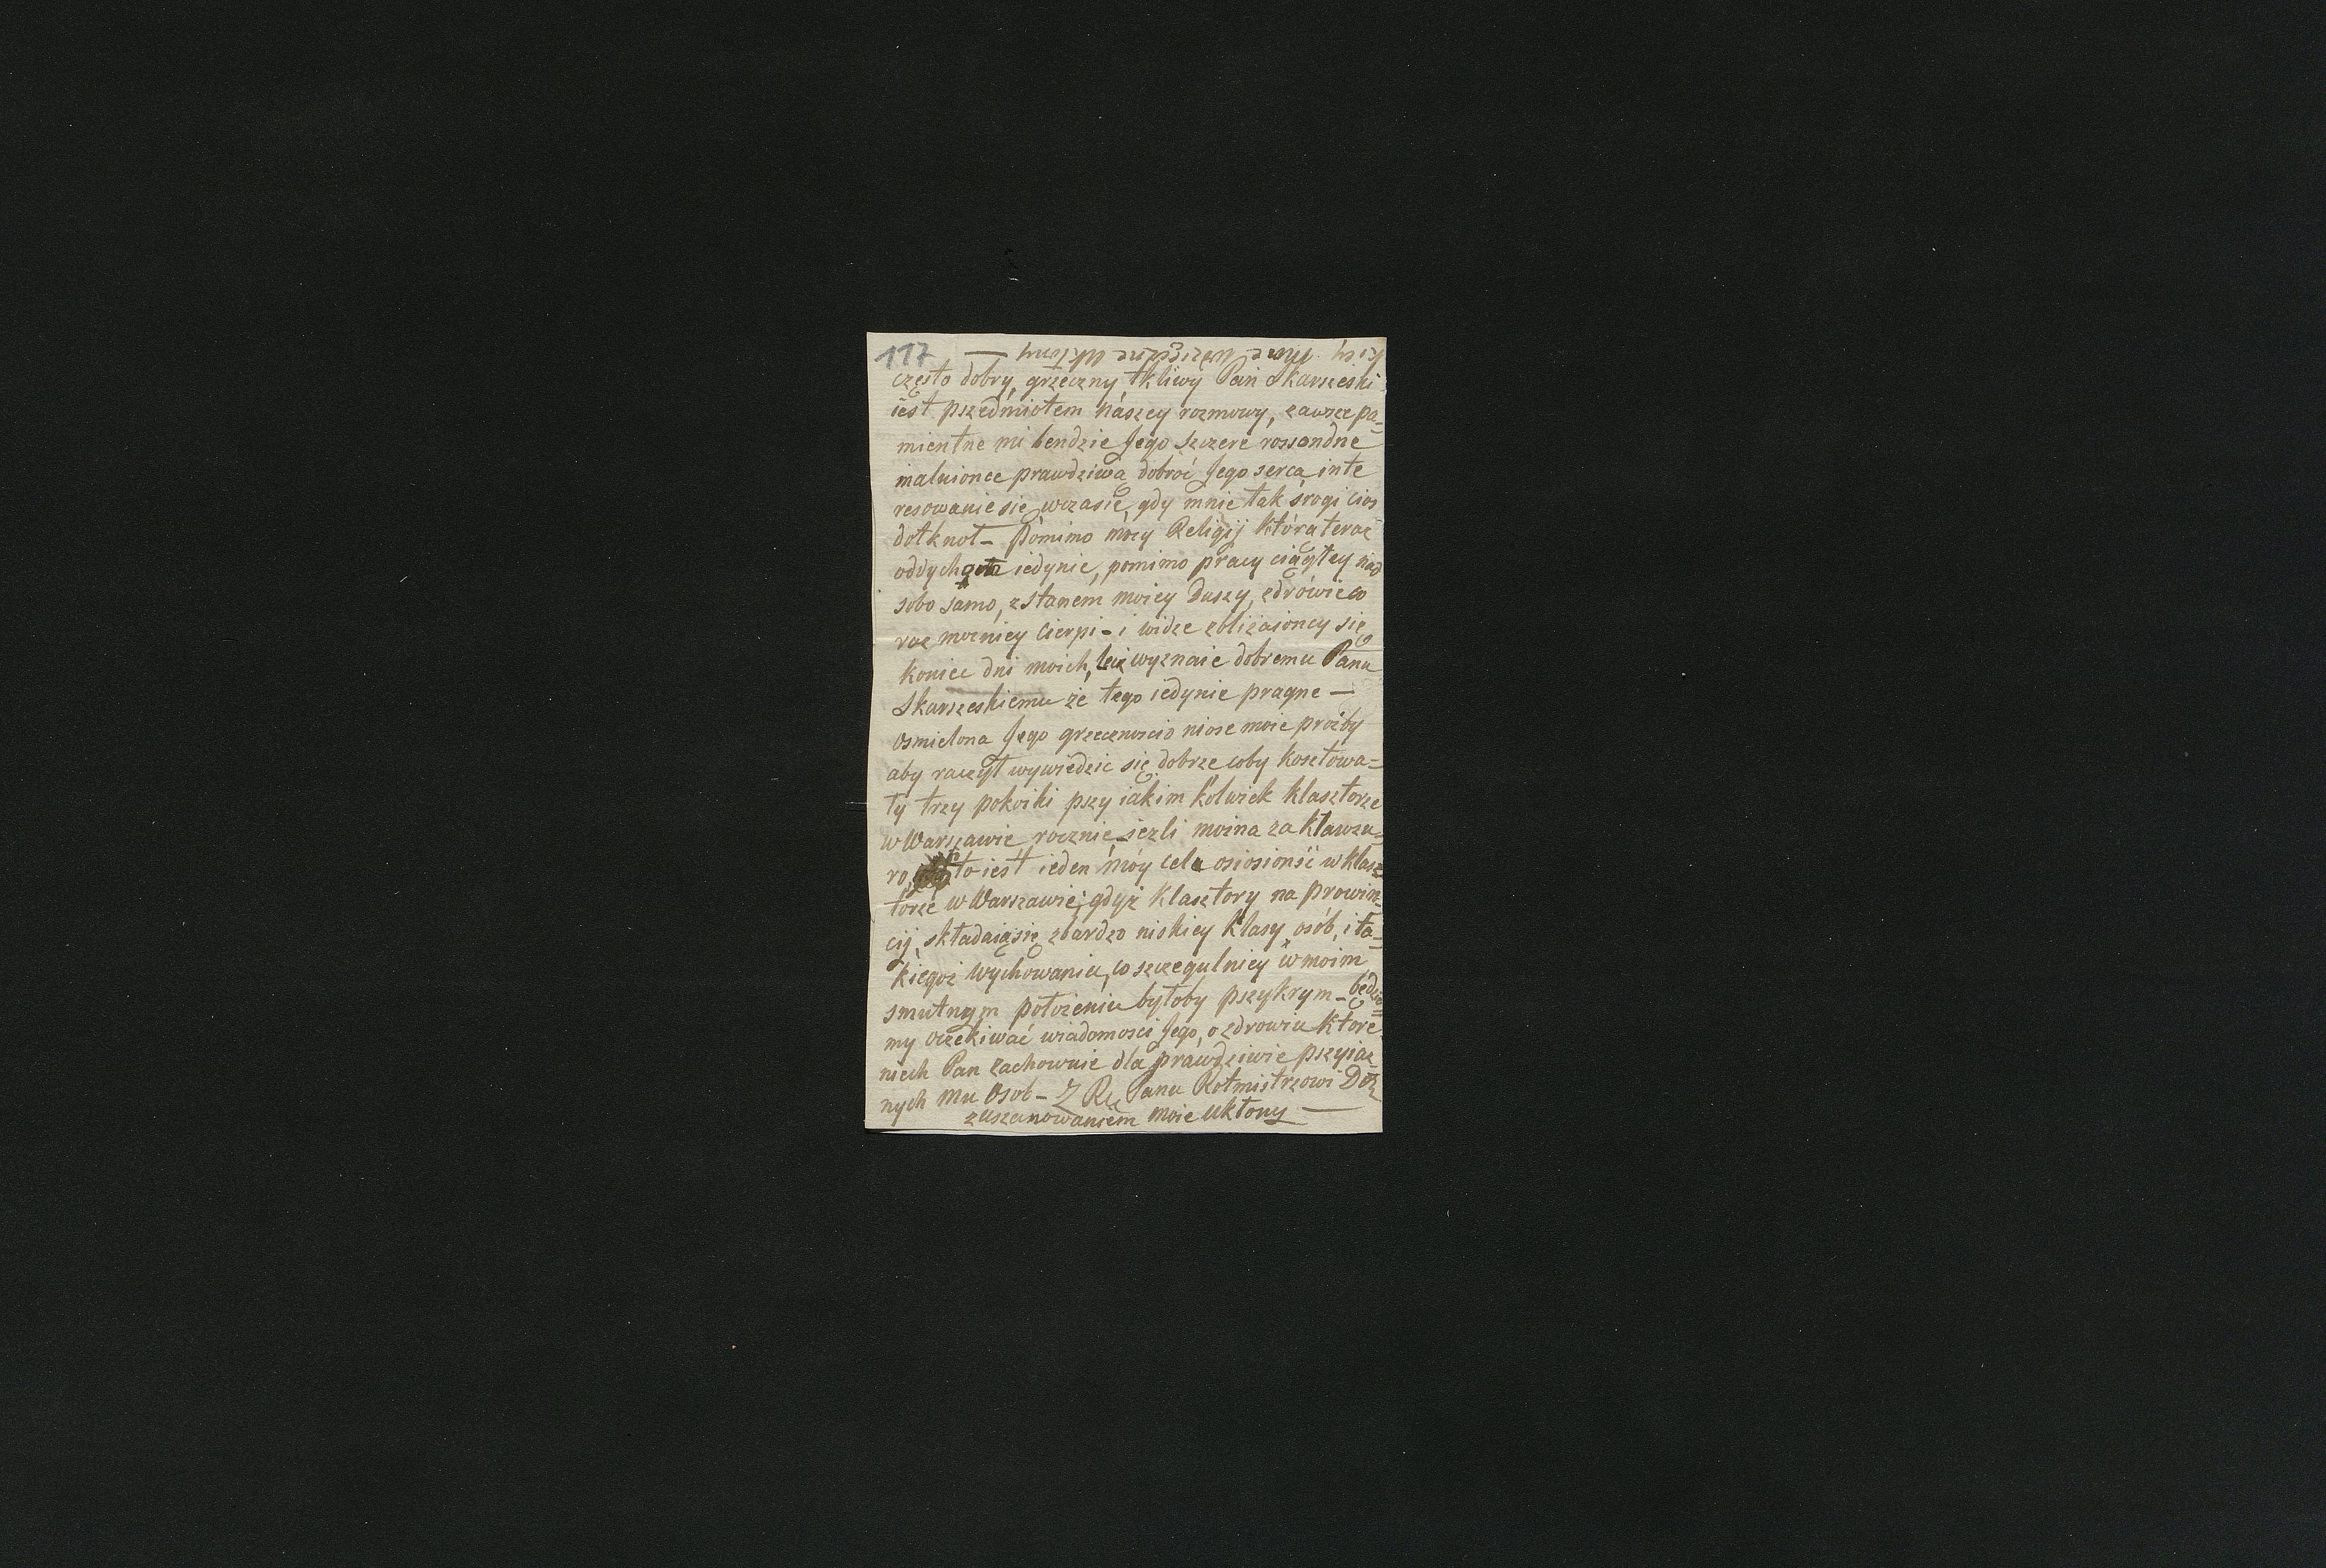 117
często dobry, grzeczny tkliwy Pan Skarszeski
iest pszedmiotem naszey rozmowy, zawsze pa-
mientne mi bendzie Jego szczere rossondne
maluionce prawdziwą dobroć Jego serca inte
resowanie się wczasie, gdy mnie tak srogi cios
dotknoł_ Pomimo mocy Religij którą teraz
oddycham iedynie, pomimo pracy ciągłey nad
sobo samo, z stanem moiey Duszy, zdrowie co
raz mocniey cierpi - i widze zbliżaioncy się
koniec dni moich, lecz wyznaie dobremu Panu
Skarszeskiemu że tego iedynie pragne —
Osmielona Jego grzecznoscio niose moie prożby
aby raczył wywiedzic się dobrze coby kosztowa=
ły trzy pokoiki pszy iakim kolwiek klasztorze
w Warszawie rocznie_ iezli można za klawzu-
ro, to iest ieden móy cel osiosionść w klasz
torze w Warszawie; gdyż klasztory na prowin-
cij, składaią się zbardzo niskiey klasy osób, i ta-
kiegoż wychowania, co szczegulniey w moim
smutnym położeniu byłoby pszykrym_ będzie=
my oczekiwać wiadomosci Jego, o zdrowiu które
niech Pan zachowuie dla prawdziwie pszyiaz
nych mu Osob_ Panu Rotmistrzowi
zuszanowaniem moie ukłony —